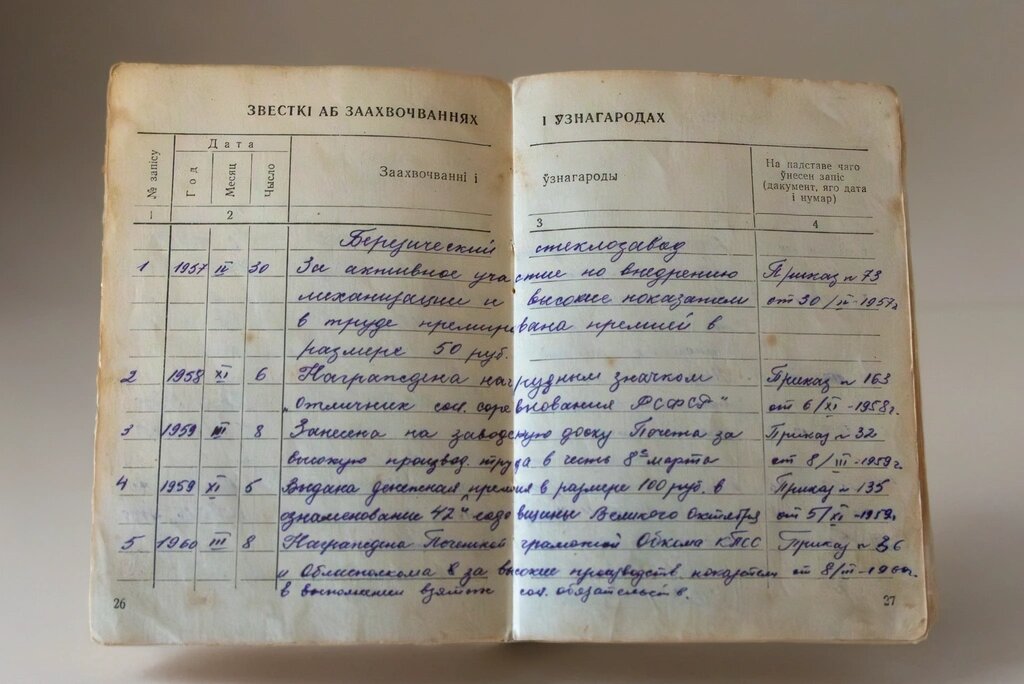 ЗВЕСТКІ АБ ЗААХВОЧВАННЯХ І ЎЗНАГАРОДАХ
№ запісу Дата Заахвочванні і ўзнагароды На падставе чаго
Год Месяц Чысло ўнесен запіс
(дакумент, яго дата
і нумар)
1 2 3 4
стеклозавод
1 1957 IV 30 За активное участие по внедрению Приказ № 73
механизации и высокие показатели от 30/IV-1957г
в труде премирована премией в
размере 50 руб.
2 1958 XI 6 Награждена нагрудным значком Приказ № 163
„Отличник соц. соревнования РСФСР" от 6/XI-1958г.
3 1959 III 8 Занесена на заводскую доску Почета за Приказ № 32
высокую производ. труда в честь 8е марта от 8/III-1959г.
4 1959 XI 5 Выдана денежная премия в размере 100 руб. в Приказ № 135
ознаменование 42й годовщины Великого Октября от 5/XI-1959г.
5 1960 III 8 Награждена Почетной грамотой Обкома КПСС Приказ № 36
и Облисполкома за высокие производств. показатели от 8/III-1960г.
в выполнении взятых соц. обязательств.
26 27